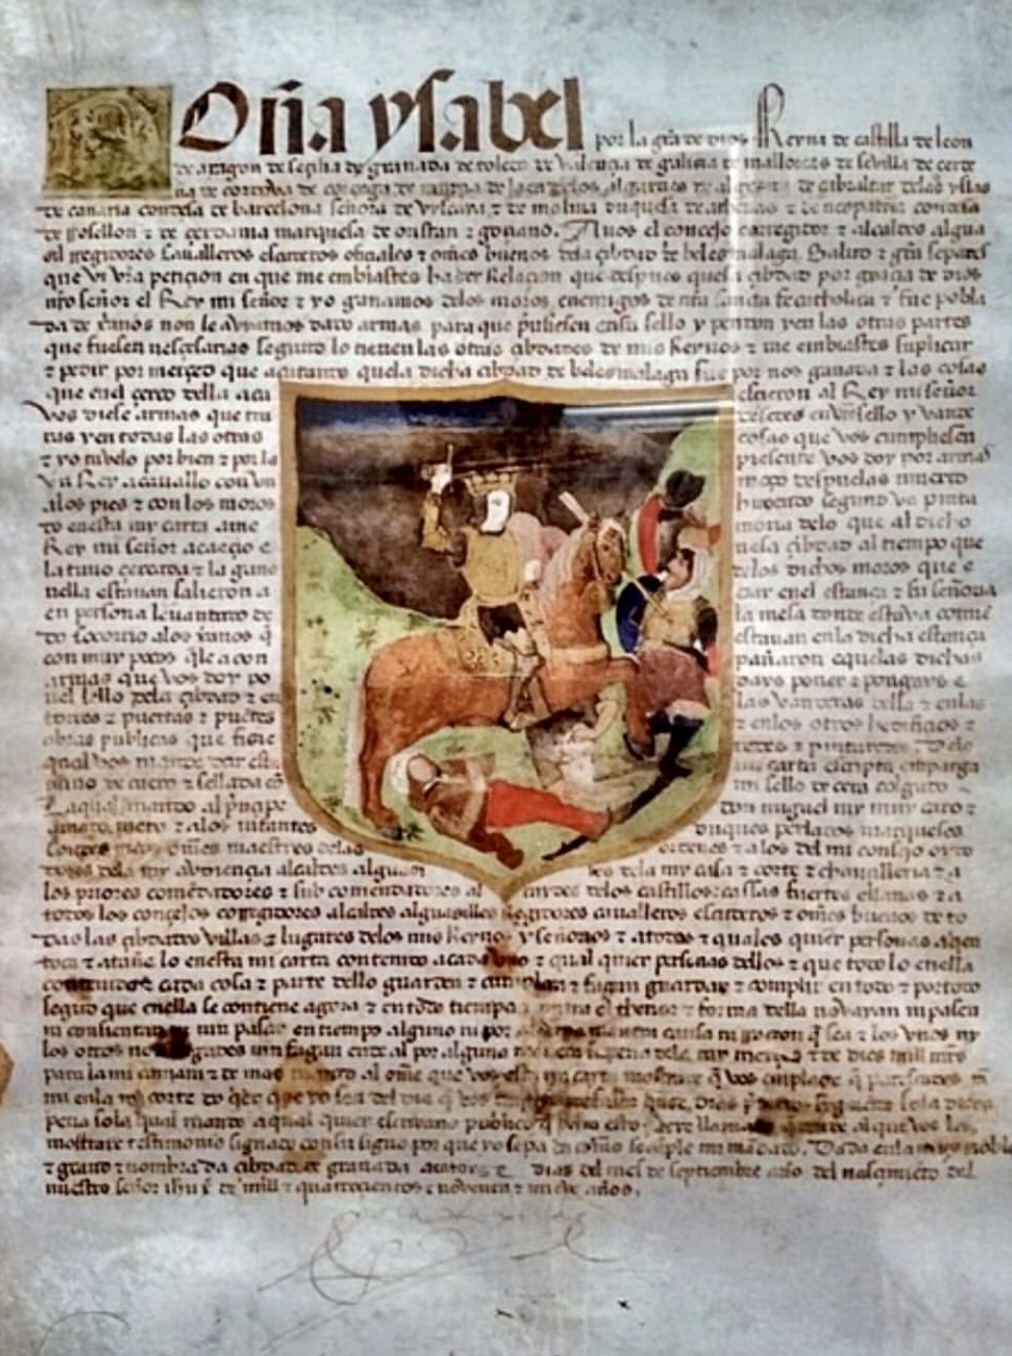 Doña ysabel por la grã de dios Reyna de castilla de leon
de aragon de seçilia de granada de toledo de valençia de galizia de mallorcas de sevilla de cerde
na de cordova de corçega de murçia de jaen delos algarves de algezira de gibraltar delas yslas
de canaria condesa de barcelona señora de vyscaya z de molina duquesa de atenas z de neopatria condesa
de rosellon z de çerdania marquesa de oristan z goçiano. A vos el concejo corregidor z alcaldes algua
zil regidores cavalleros escuderos ofiçiales z omẽs buenos dela çibdad de beles malaga. Salud z grã sepades
que vi vrã petiçion en que me embiastes hazer Relaçion que despues quesa çibdad por graçia de dios
nrõ señor el Rey mi señor z yo ganamos delos moros enemigos de nrã sancta fe catholica z fue pobla
da de xanos non le avyamos dado armas para que pusiesen en su sello y pendon y en las otras partes
que fuesen nesçesarias segund lo tienen las otras çibdades de mis Reynos z me embiastes suplicar
z pedir por merçed que acatando quela dicha çibdad de beles malaga fue por nos ganada z las cosas
que enel çerco della aca esçieron al Rey mi señor
vos diese armas que en vrõ sello y vande
ras y en todas las otras cosas que vos cunpliesen
z yo tuvelo por bien z por la presente vos doy por armas
vn Rey a cavallo con vn moço despuelas muerto
alos pies z con los moros segund va pinta
do enesta my carta delo que al dicho
Rey mi señor acaeçio e nesa çibdad al tiempo que
la tuvo çercada z la gano delos dichos moros que e
nella estavan salieron a dar enel
en persona levantado de la mesa donde estava
do socorro alos xanos q̃ estavan enla dicha estança
con muy pocos q̃le acon pañaron aquelas dichas
armas que vos doy po days poner z pongays e
nel sello dela çibdad z en las vanderas della z enlas
torres z puertas z puẽtes z enlos otros hedifiçios z
obras publicas que fizie redes z
qual vos mande dar esta mi carta escripta en parga
mino de cuero z sellada cõ mi sello de cera colgado
Laqual mando al prinçipe don miguel my muy caro z
amado nieto z alos infantes duques perlados marqueses
condes omẽs maestres delas ordenes z alos del mi consejo oydo
res dela my abdiençia alcaldes alguazi les dela my casa z corte z chançilleria z a
los priores comẽdadores z sub comendadores al caydes delos castillos z casas fuertes z llanas z a
todos los conçejos corregidores alcaldes alguaziles Regidores cavalleros escuderos z omẽs buenos de to
das las çibdades villas z lugares delos mis Reynos y señorios z a todos z quales quier personas a quien
toca z atañe lo enesta mi carta contenido a cada vno z qual quier personas dellos z que todo lo enella
contenido z cada cosa z parte dello guarden z cunplan z fagan guardar z complir en todo z por todo
segund que enella se contiene agora z en todo tienpo z contra el thenor z forma della no vayan ni pasen
ni consientan yr nin pasar en tiempo alguno ni por alguna manera causa ni razon q̃ sea z los vnos ny
los otros no fagades nin fagan ende al por alguna manera so pena dela my merçed z de diez mill mrs̃
para la mi camara z de mas mando al omẽ que vos esta my carta mostrare q̃ vos enplaze q̃ parescades
mi enla my corte do q̃er que yo sea del dia q̃ vos dias primeros syguientes so la dicha
pena sola qual mando a qual quier escrivano publico q̃ para esto fuere llamado que de al que vos la
mostrare testimonio signado con su signo por que yo sepa en como se cunple mi mandado. Dada enla muy noble
z grand z nombrada çibdad de granada a catorze dias del mes de septiembre año del nasçimiento del
nuestro señor ihũ xº de mill z quatroçientos z noventa z nueve años.